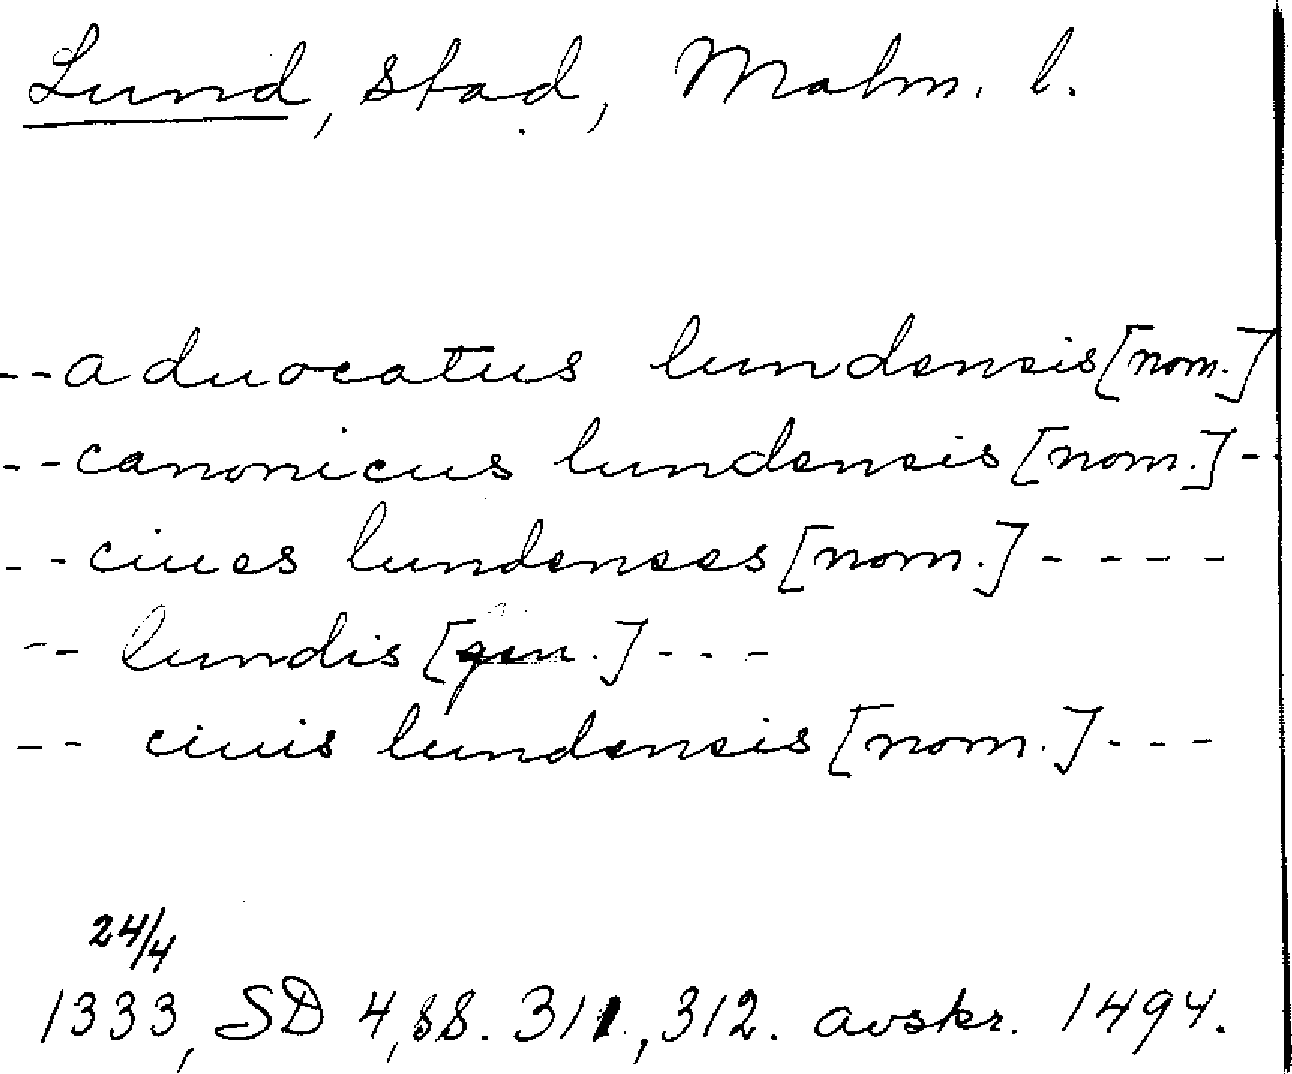 Lund, stad, Malm. l.
--aduocatus lundensis [nom.]
--canonicus lundensis [nom.]-
--ciues lundenses [nom.]----
-- lundis [gen.]---
-- ciuis lundensis [nom.]---
24/4
1333, SD 4, ss. 311., 312. avskr. 1494.